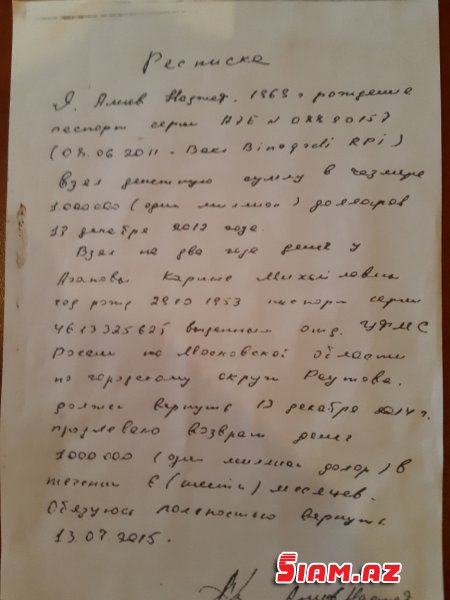 Расписка
Я. Алиев 1969 г рождение
паспорт серии АЗЕ N
(08.06.2011 - Baki Binəqədi RPİ)
взел денежную сумму в размере
1000000 (один миллион) долларов
13 декабря 2012 года.
Взел на два года денег у
Карине Михайловны
год рожд 1953 паспорт серии
4613325625 выданным отд. УФМС
России по Московской области
по городскому округу Реутова.
должен вернуть 13 декабря 2014 г.
продлевано возврат денег
1000000 (один миллион долор) в
течении 6 (шести) месяцев.
Обязуюсь полностью вернуть
13.07 2015.
Алиев
SIAM.AZ